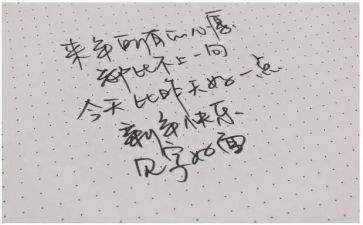 来年所有的心愿
都比不上一句
今天比昨天好一点
新年快乐
见字如面